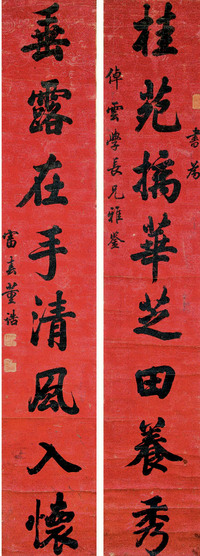 桂苑摛華芝田養秀
書為
倬雲學長兄雅鑒
垂露在手清風入懷
富春董誥